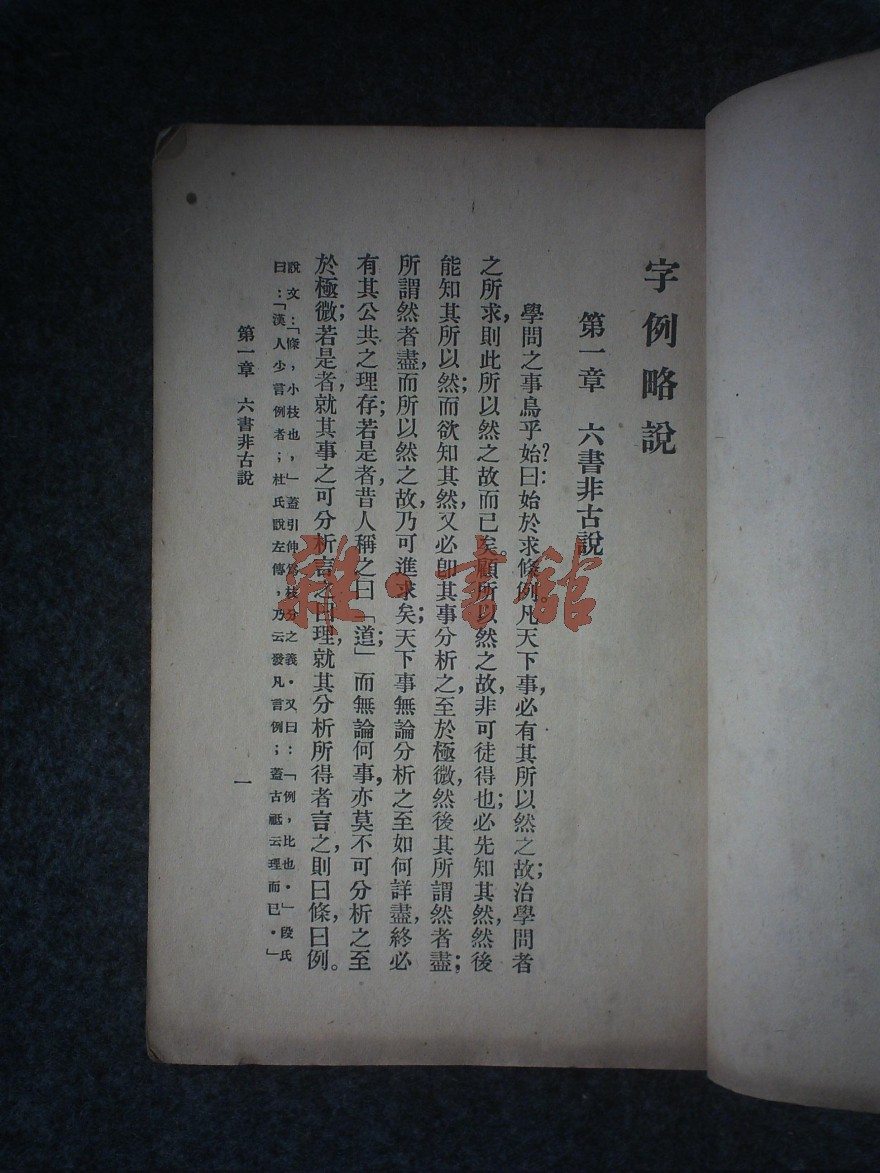 字例略說
第一章　六書非古說
學問之事烏乎始？曰：始於求條例。凡天下事，必有其所以然之故；治學問者
之所求，則此所以然之故而已矣。顧所以然之故，非可徒得也；必先知其然，然後
能知其所以然；而欲知其然，又必卽其事分析之，至於極微，然後其所謂然者盡；
所謂然者盡，而所以然之故，乃可進求矣。天下事無論分析之至如何詳盡，終必
有其公共之理存；若是者，昔人稱之曰「道」；而無論何事，亦莫不可分析之至
於極微；若是者，就其事之可分析言之，曰理，就其分析所得者言之，則曰條，曰例。
說文：「條，小枝也，」蓋引伸爲枝分之義。又曰：「例，比也。」段氏
曰：「漢人少言例者；杜氏說左傳，乃云發凡言例；蓋古祗云理而已。」
第一章　六書非古說
一
雜·書館